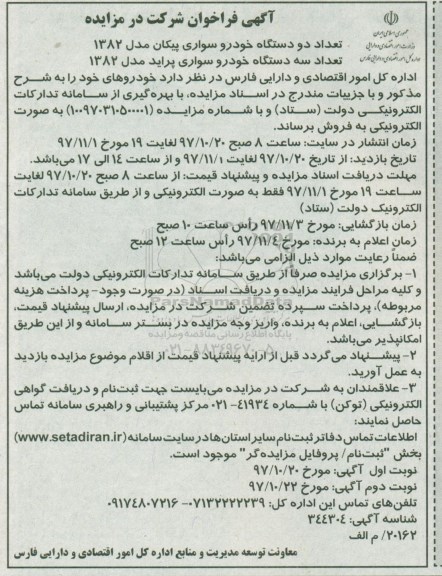 آگهی فراخوان شرکت در مزایده
جمهوری اسلامی ایران
وزارت امور اقتصادی و دارایی
اداره کل امور اقتصادی و دارایی فارس
تعداد دو دستگاه خودرو سواری پیکان مدل ۱۳۸۲
تعداد سه دستگاه خودرو سواری پراید مدل ۱۳۸۲
اداره کل امور اقتصادی و دارایی فارس در نظر دارد خودروهای خود را به شرح
مذکور و با جزییات مندرج در اسناد مزایده، با بهره‌گیری از سامانه تدارکات
الکترونیکی دولت (ستاد) و با شماره مزایده (۱۰۰۹۷۰۳۱۰۵۰۰۰۰۱) به صورت
الکترونیکی به فروش برساند.
زمان انتشار در سایت: ساعت ۸ صبح ۹۷/۱۰/۲۰ لغایت ۱۹ مورخ ۹۷/۱۱/۱
تاریخ بازدید: از تاریخ ۹۷/۱۰/۲۰ لغایت ۹۷/۱۱/۱ و از ساعت ۱۴ الی ۱۷ می‌باشد.
مهلت دریافت اسناد مزایده و پیشنهاد قیمت: از ساعت ۸ صبح ۹۷/۱۰/۲۰ لغایت
ساعت ۱۹ مورخ ۹۷/۱۱/۱ فقط به صورت الکترونیکی و از طریق سامانه تدارکات
الکترونیک دولت (ستاد)
زمان بازگشایی: مورخ ۹۷/۱۱/۳ رأس ساعت ۱۰ صبح
زمان اعلام به برنده: مورخ ۹۷/۱۱/۴ رأس ساعت ۱۲ صبح
ضمناً رعایت موارد ذیل الزامی می‌باشد:
۱- برگزاری مزایده صرفاً از طریق سامانه تدارکات الکترونیکی دولت می‌باشد
و کلیه مراحل فرایند مزایده و دریافت اسناد (در صورت وجود- پرداخت هزینه
مربوطه)، پرداخت سپرده تضمین شرکت در مزایده، ارسال پیشنهاد قیمت،
بازگشایی، اعلام به برنده، واریز وجه مزایده در بستر سامانه و از این طریق
امکانپذیر می‌باشد.
۲- پیشنهاد می‌گردد قبل از ارایه پیشنهاد قیمت از اقلام موضوع مزایده بازدید
به عمل آورید.
۳- علاقمندان به شرکت در مزایده می‌بایست جهت ثبت‌نام و دریافت گواهی
الکترونیکی (توکن) با شماره ۴۱۹۳۴-۰۲۱ مرکز پشتیبانی و راهبری سامانه تماس
حاصل نمایند:
اطلاعات تماس دفاتر ثبت‌نام سایر استان‌ها در سایت سامانه (www.setadiran.ir)
بخش "ثبت‌نام/ پروفایل مزایده‌گر" موجود است.
نوبت اول آگهی: مورخ ۹۷/۱۰/۲۰
نوبت دوم آگهی: مورخ ۹۷/۱۰/۲۲
تلفن‌های تماس این اداره کل: ۰۷۱۳۲۲۲۲۲۳۹- ۰۹۱۷۴۸۰۷۲۱۶
شناسه آگهی: ۳۴۴۳۰۴
۲۰۱۶۲/ م الف
معاونت توسعه مدیریت و منابع اداره کل امور اقتصادی و دارایی فارس